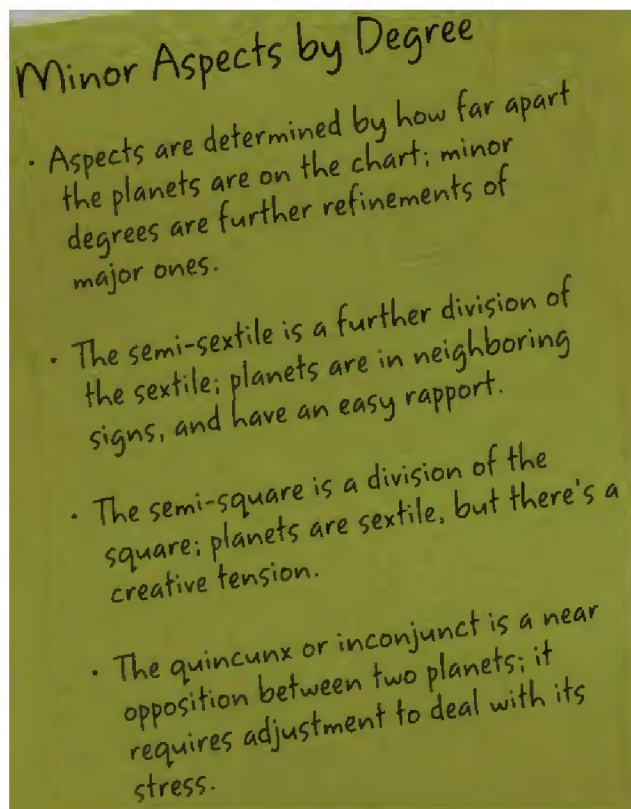 Minor Aspects by Degree
· Aspects are determined by how far apart
the planets are on the chart; minor
degrees are further refinements of
major ones.
· The semi-sextile is a further division of
the sextile; planets are in neighboring
signs, and have an easy rapport.
· The semi-square is a division of the
square; planets are sextile, but there's a
creative tension.
· The quincunx or inconjunct is a near
opposition between two planets; it
requires adjustment to deal with its
stress.